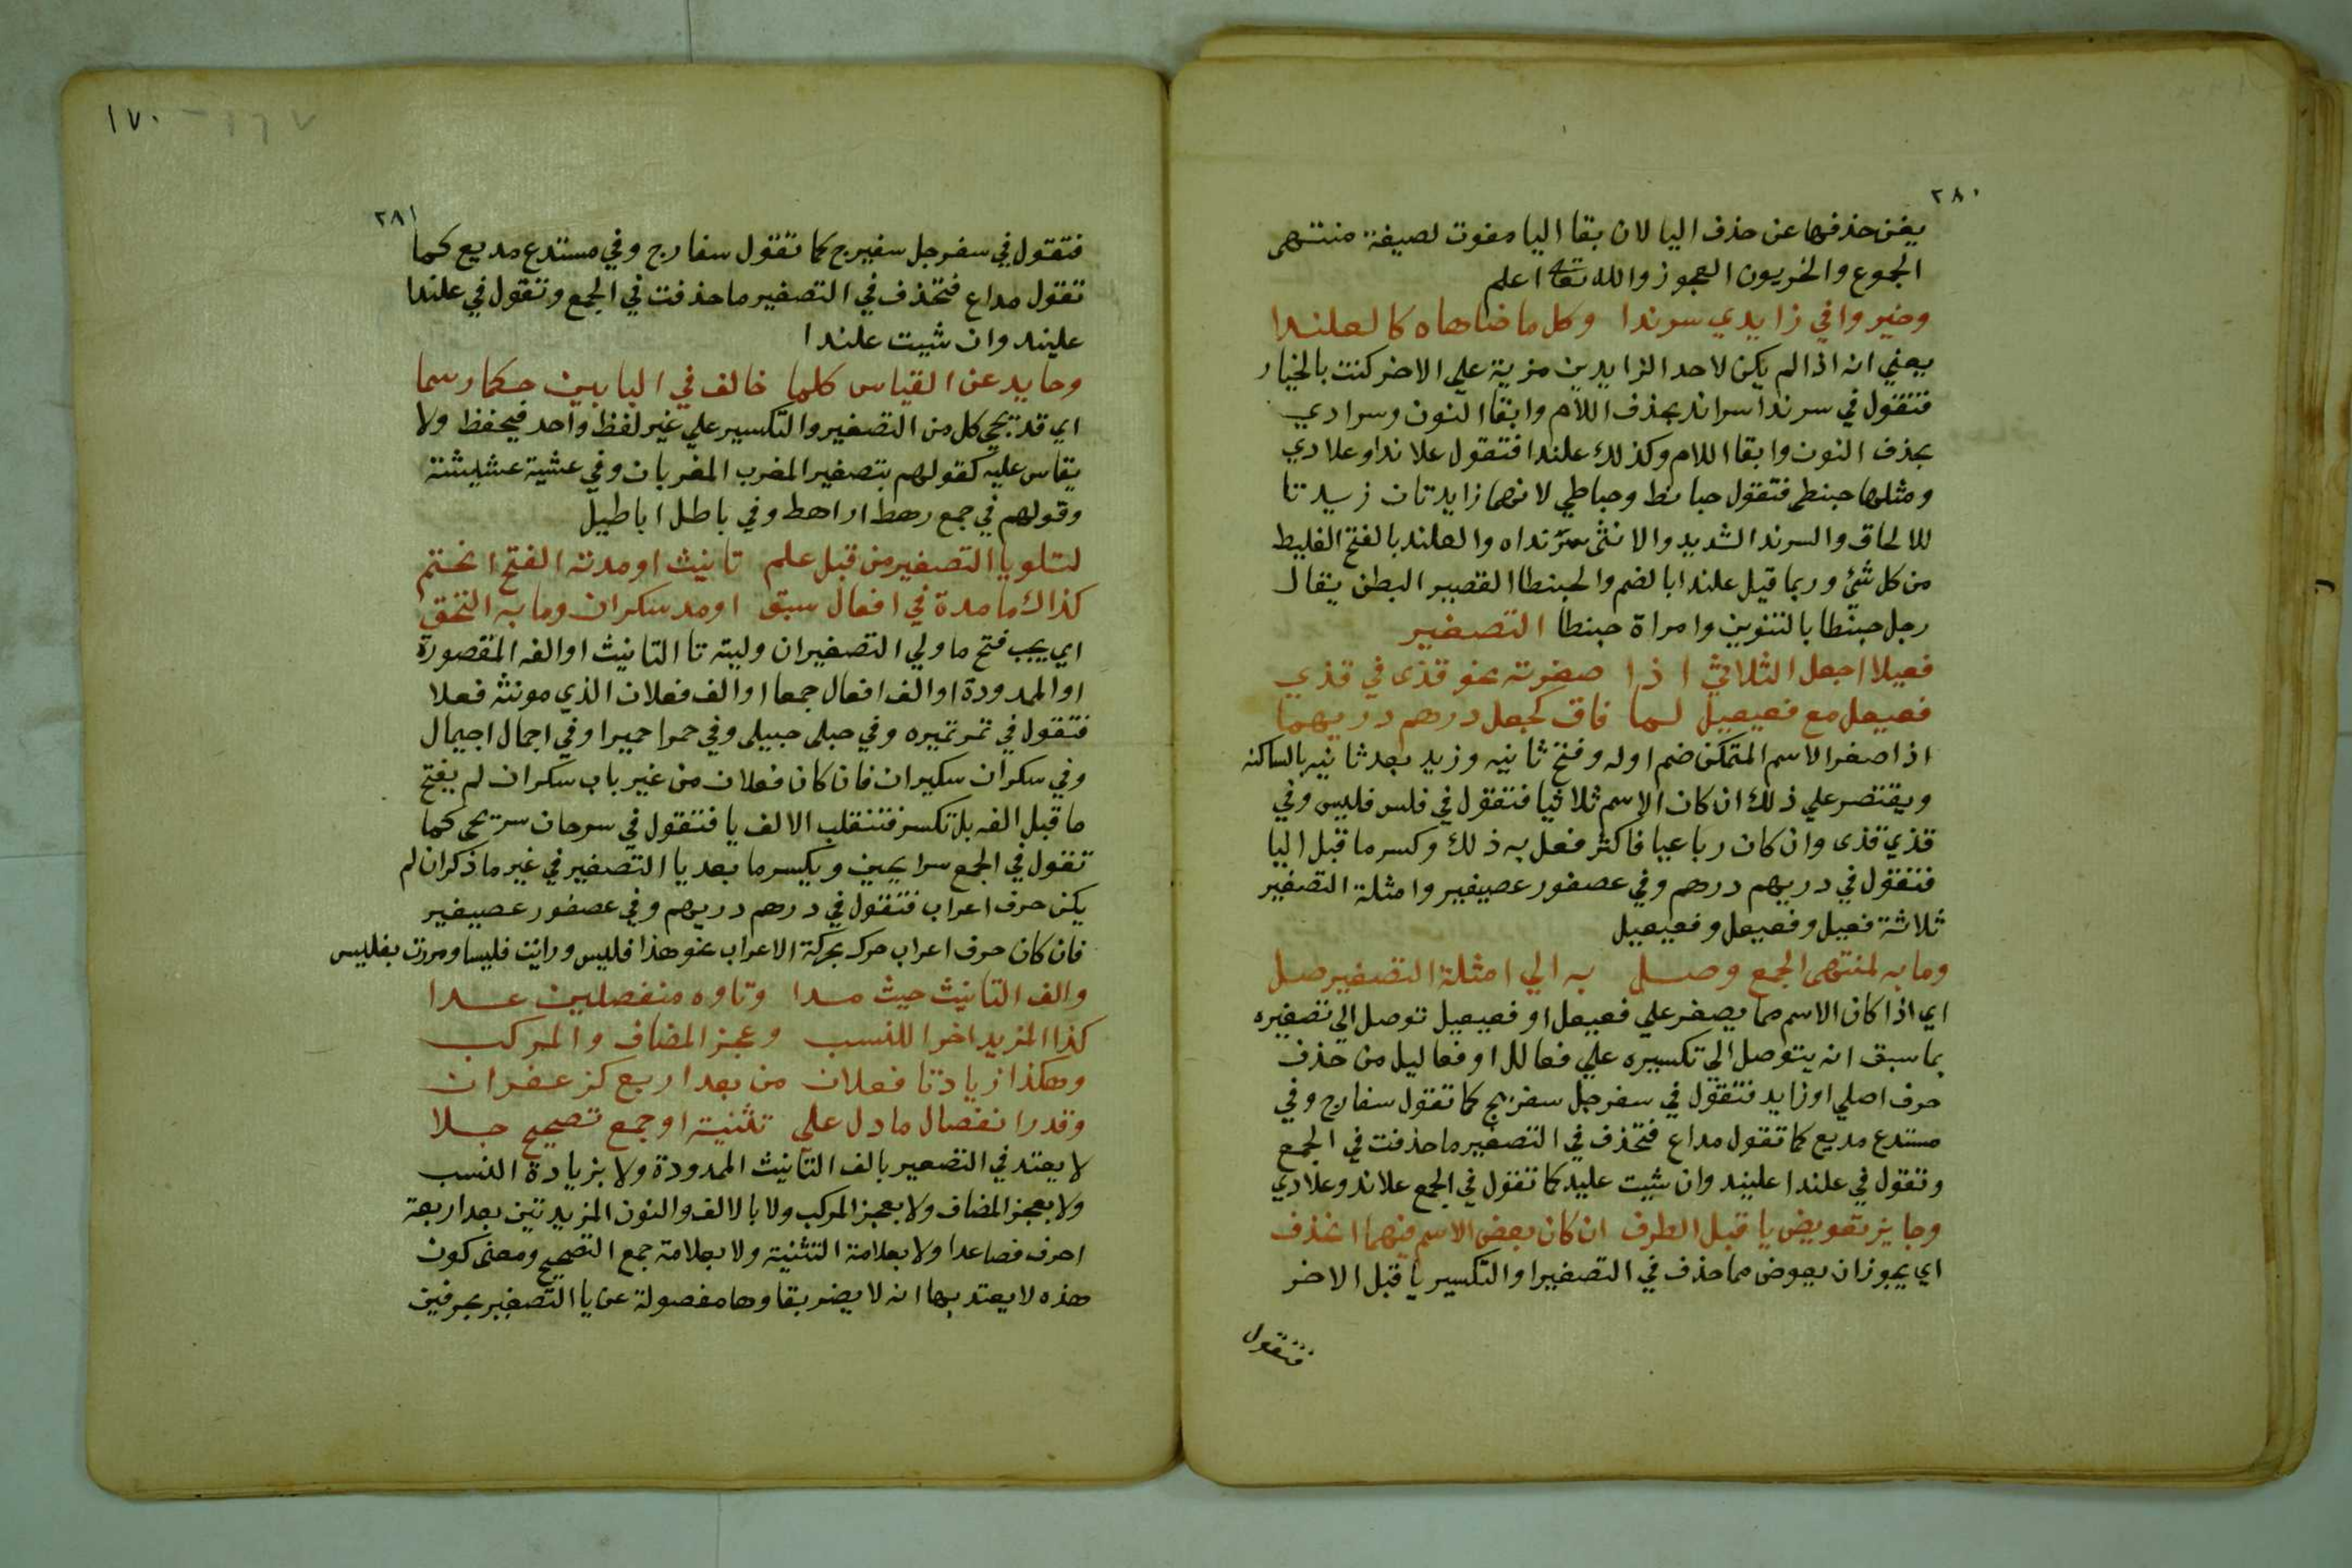 ٢٨٠
يغن حذفها عن حذف اليا لان بقا اليا مفوت لصيغة منتهى
الجموع والحزيون العجوز والله تعا اعلم
وخيروا في زايدي سرندا وكل ما ضاهاه كالعلندا
يعني انه اذا لم يكن لاحد الزايدين مزية علي الاخر كنت بالخيار
فتقول في سرندا سراند بحذف اللام وابقا النون وسرادي
بحذف النون وابقا اللام وكذلك علندا فتقول علاندا وعلادي
ومثلها حبنطى فتقول حبانط وحباطي لانهما زايدتان زيدتا
للالحاق والسرندا الشديد والانثى سرنداه والعلند بالفتح الغليظ
من كل شئ وربما قيل علندا بالضم والحبنطا القصير البطن يقال
رجل حبنطا بالتنوين وامراة حبنطا التصغير
فعيلا اجعل الثلاثي اذا صغرته نحو قذى في قذي
فعيعل مع فعيعيل لما فاق كجعل درهم دريهما
اذا صغر الاسم المتمكن ضم اوله وفتح ثانيه وزيد بعد ثانيه يا ساكنه
ويقتصر علي ذلك ان كان الاسم ثلاثيا فتقول في فلس فليس وفي
قذي قذى وان كان رباعيا فاكثر فعل به ذلك وكسر ما قبل اليا
فتقول في دريهم درهم وفي عصفور عصيفير وامثلة التصغير
ثلاثة فعيل وفعيعل وفعيعيل
وما به لمنتهى الجمع وصل به الي امثلة التصغير صل
اي اذا كان الاسم مما يصغر علي فعيعل او فعيعيل توصل الي تصغيره
بما سبق انه يتوصل الي تكسيره علي فعالل او فعاليل من حذف
حرف اصلي او زايد فتقول في سفرجل سفيرج كما تقول سفارج وفي
مستدع مديع كما تقول مداع فتحذف في التصغير ما حذفت في الجمع
وتقول في علندا عليند وان شيت عليد كما تقول في الجمع علاند وعلادي
وجايز تعويض يا قبل الطرف ان كان بعض الاسم فيهما انحذف
اي يجوز ان يعوض مما حذف في التصغير او التكسير يا قبل الاخر
فتقول
١٧٠ - ١٦٧
٢٨١
فتقول في سفرجل سفيرج كما تقول سفارج وفي مستدع مديع كما
تقول مداع فتحذف في التصغير ما حذفت في الجمع وتقول في علندا
عليند وان شيت علندا
وحايد عن القياس كلما خالف في البابين حكما رسما
اي قد يجي كل من التصغير والتكسير علي غير لفظ واحد فيحفظ ولا
يقاس عليه كقولهم بتصغير المغرب المغربان وفي عشية عشيشة
وقولهم في جمع رهط اراهط وفي باطل اباطيل
لتلو يا التصغير من قبل علم تانيث او مدته الفتح انحتم
كذاك ما مدة في افعال سبق او مد سكران وما به التحق
اي يجب فتح ما ولي التصغير ان وليته تا التانيث او الفه المقصورة
او الممدودة او الف افعال جمعا او الف فعلان الذي مونثه فعلا
فتقول في تمر تميره وفي حبلى حبيلى وفي حمرا حميرا وفي اجمال اجيمال
وفي سكران سكيران فان كان فعلان من غير باب سكران لم يفتح
ما قبل الفه بل تكسر فتنقلب الالف يا فتقول في سرحان سريحي كما
تقول في الجمع سرايحين ويكسر ما بعد يا التصغير في غير ما ذكر ان لم
يكن حرف اعراب فتقول في درهم دريهم وفي عصفور عصيفير
فان كان حرف اعراب حرك بحركة الاعراب نحو هذا فليس ورايت فليسا ومررت بفليس
والف التانيث حيث مدا وتاوه منفصلين عدا
كذا المزيد اخرا للنسب وعجز المضاف والمركب
وهكذا زيادتا فعلان من بعد اربع كزعفران
وقدر انفصال ما دل علي تثنية او جمع تصحيح جلا
لا يعتد في التصعير بالف التانيث الممدودة ولا بزيادة النسب
ولا بعجز المضاف ولا بعجز المركب ولا بالالف والنون المزيدتين بعد اربعة
احرف فصاعدا ولا بعلامة التثنية ولا بعلامة جمع التصحيح ومعنى كون
هذه لا يعتد بها انه لا يضر بقاوها مفصولة عن يا التصغير بحرفين